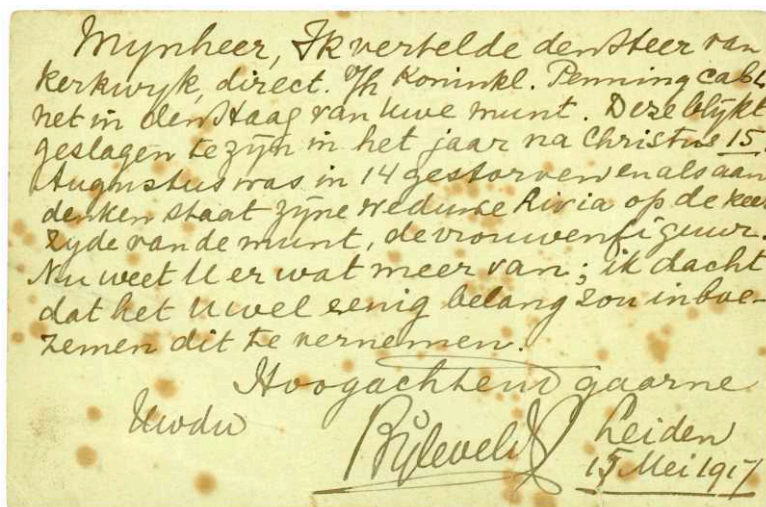 Mynheer, Ik vertelde den Heer van
Kerkwyk, direct. v/h Koninkl. Penningcabi
net in den Haag van Uwe munt. Deze blykt
geslagen te zyn in het jaar na Christus 15.
Augustus was in 14 gestorven en als aan
denken staat zyne weduwe Livia op de keer
zyde van de munt, de vrouwenfiguur.
Nu weet U er wat meer van; ik dacht
dat het U wel eenig belang zou inboe-
zemen dit te vernemen.
Hoogachtend gaarne
Uwdw
Bijleveld
Leiden
15 Mei 1917